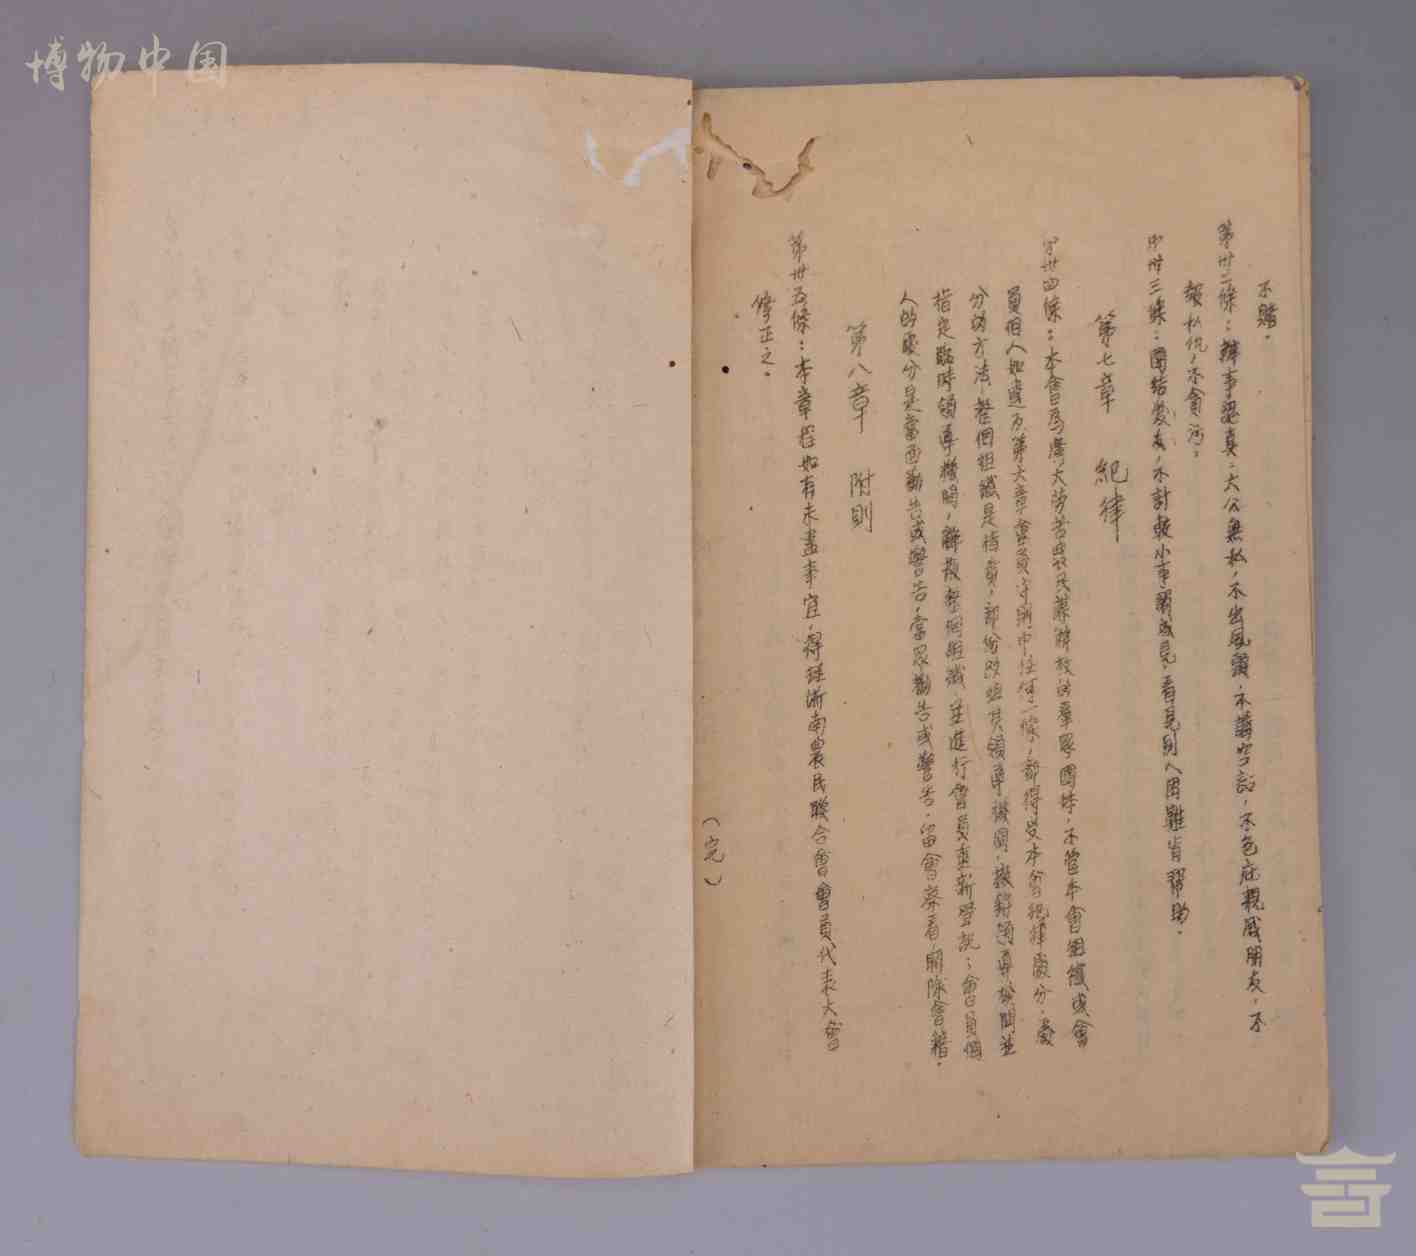 博物中国
不賭。
第卅二條：辦事認真，大公無私，不出風頭，不講空話，不包庇親戚朋友，不
報私仇，不貪污。
第卅三條：團結農友，不計較小事鬧成見，看見別人困難肯帮助。
第七章　紀律
第卅四條：本會爲廣大勞苦農民謀解放的羣眾團体，不管本會組織或會
員個人如違反第六章會員守則中任何一條，都得受本會紀律處分，處
分的方法，整個組織是指責，部份改組其領導機關，撤銷領導機關並
指定臨時領導機關，解散整個組織，並進行會員重新登記；會員個
人的處分是當面勸告或警告，當眾勸告或警告，留會察看，開除會籍。
第八章　附則
第卅五條：本章程如有未盡事宜，得經浙南農民聯合會會員代表大會
修正之。
（完）